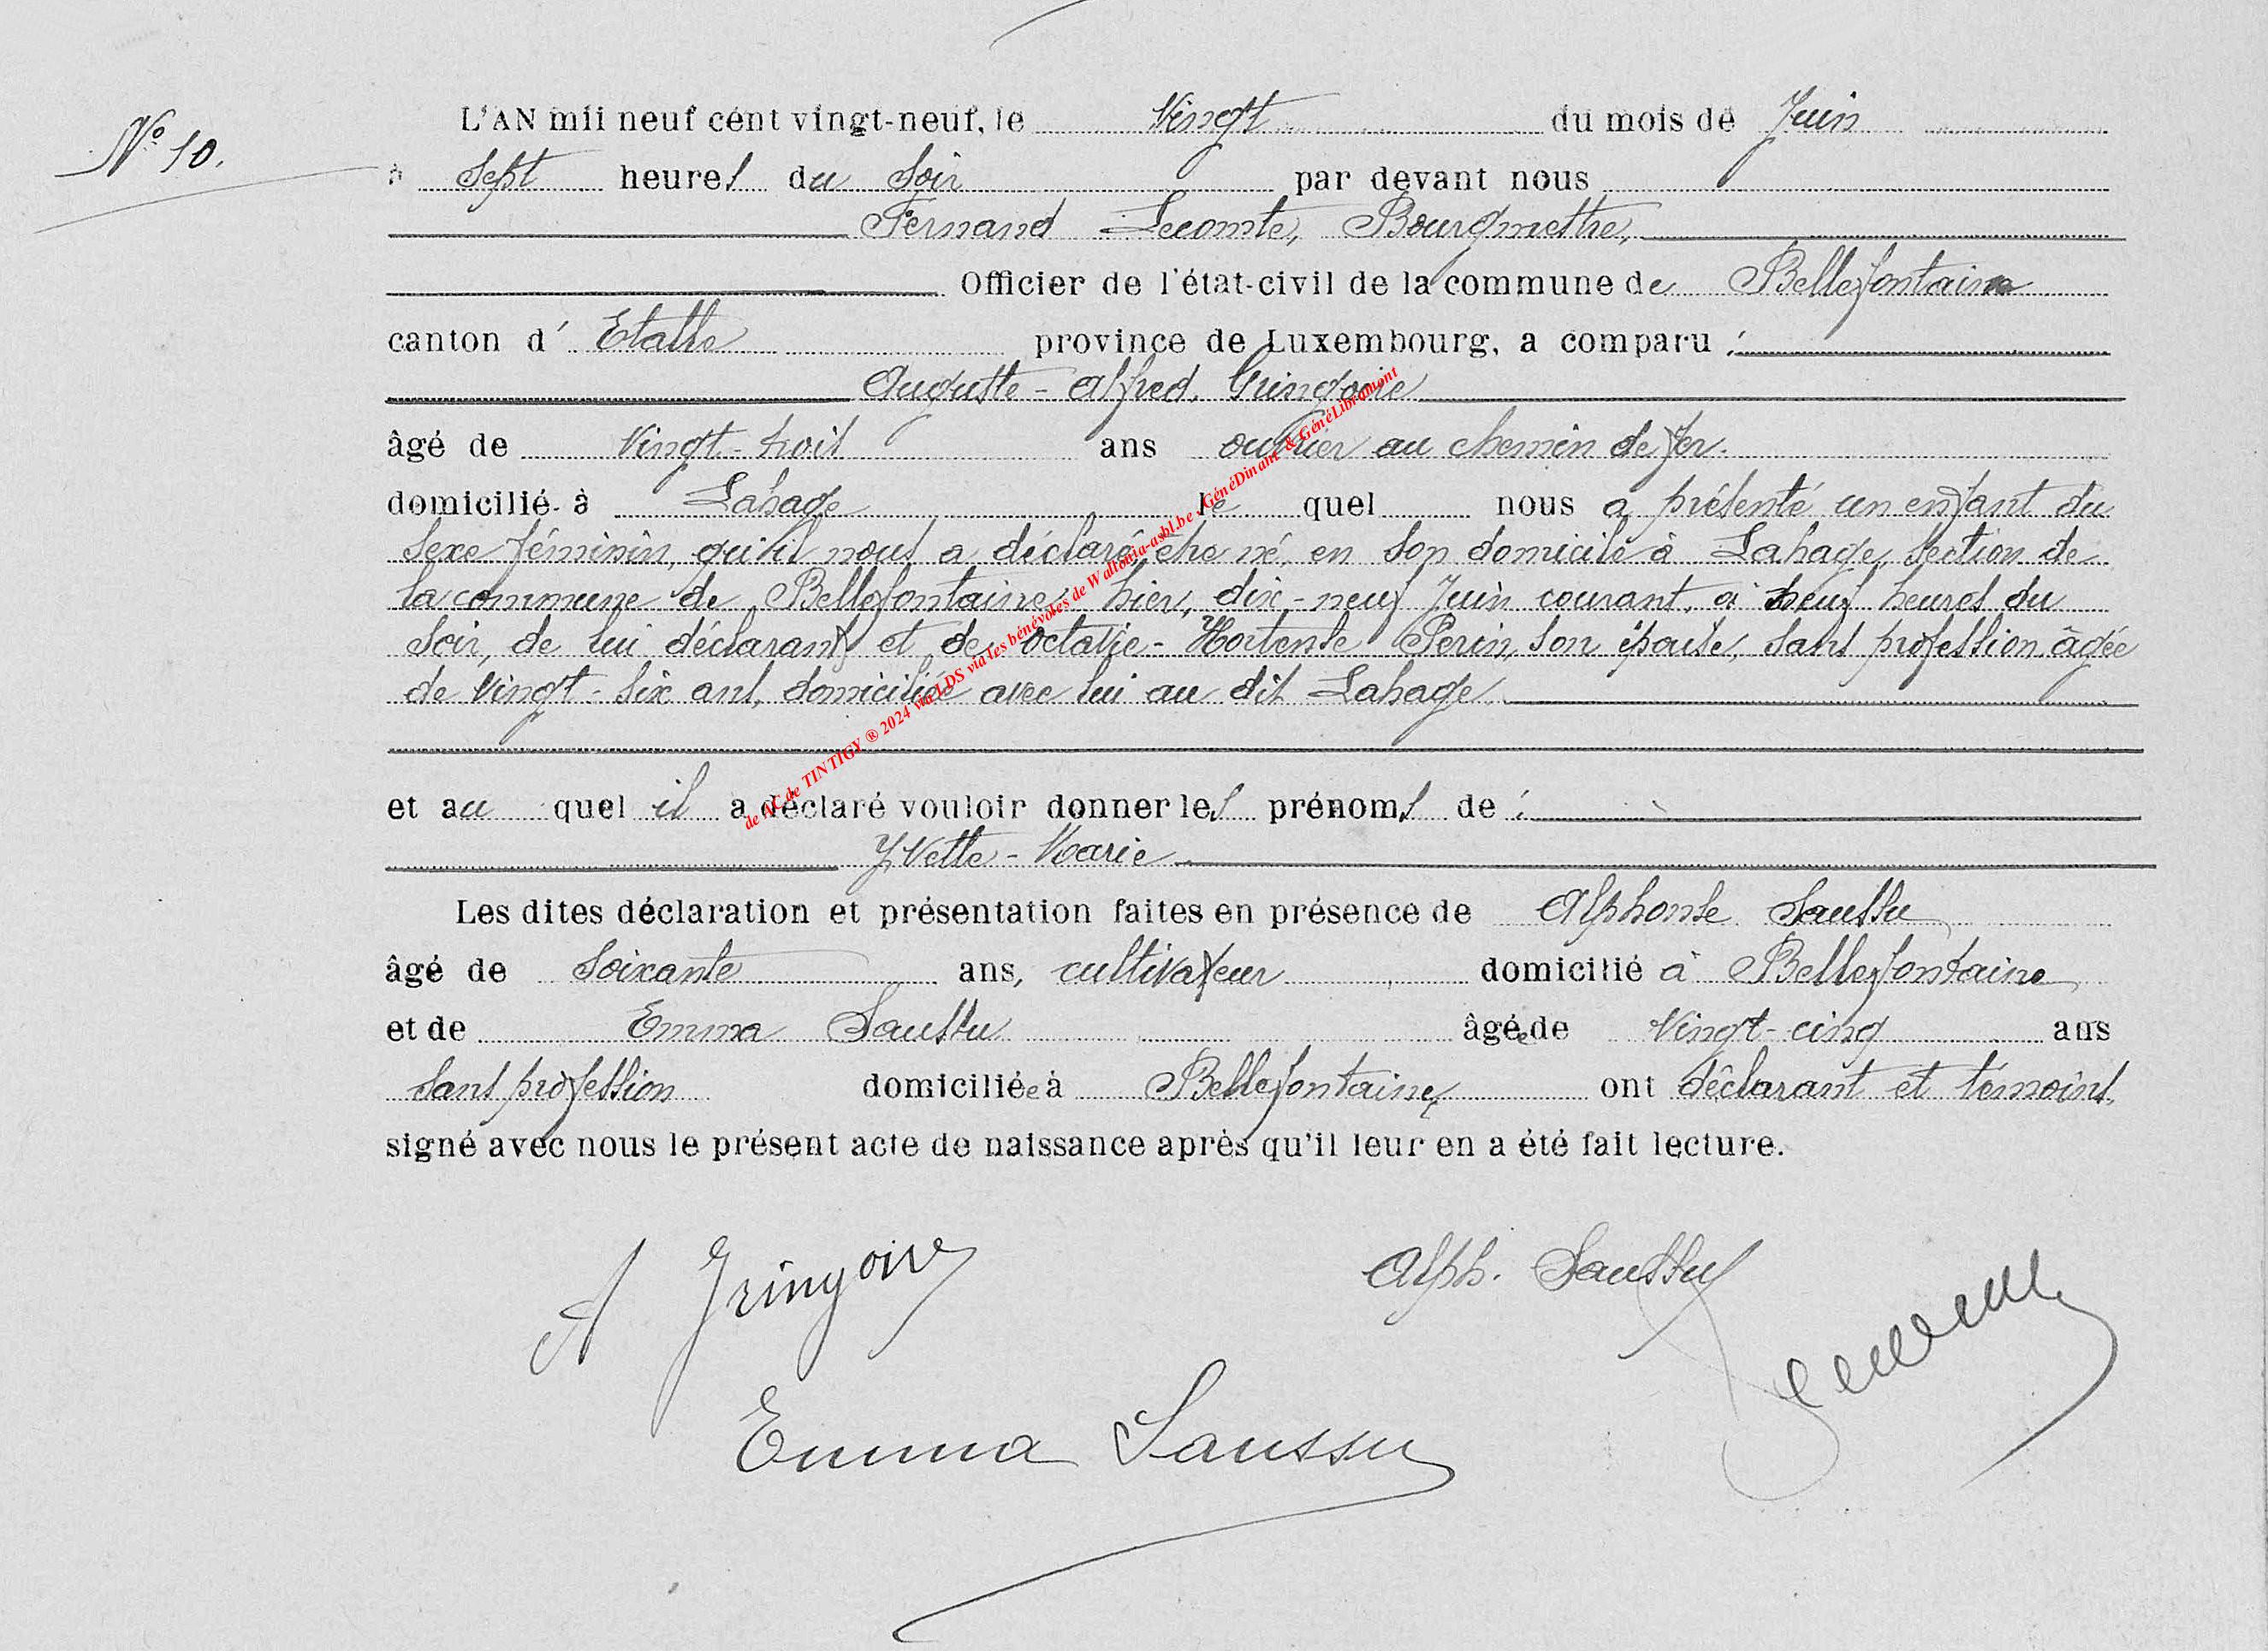 N° 10.
L'AN mil neuf cent vingt-neuf, le Vingt du mois de Juin
à Sept heures du Soir par devant nous
Fernand Lecomte, Bourgmestre,
Officier de l'état-civil de la commune de Bellefontaine
canton d' Etalle province de Luxembourg, a comparu :
Auguste - Alfred. Gringoire
âgé de Vingt-trois ans ouvrier au chemin de fer.
domicilié à Lahage le quel nous a présenté un enfant du
sexe féminin, qu'il nous a déclaré être né, en son domicile à Lahage, section de
la commune de Bellefontaine, hier, dix-neuf Juin courant, à neuf heures du
soir, de lui déclarant et de Octavie - Hortense Perin, son épouse, sans profession, âgée
de vingt-six ans, domiciliée avec lui au dit Lahage.
et au quel il a déclaré vouloir donner les prénoms de :
Yvette - Marie
Les dites déclaration et présentation faites en présence de Alphonse Saussu
âgé de Soixante ans, cultivateur domicilié à Bellefontaine
et de Emma Saussu âgée de Vingt-cinq ans
sans profession domiciliée à Bellefontaine, ont déclarant et témoins,
signé avec nous le présent acte de naissance après qu'il leur en a été fait lecture.
A Gringoire
Alph. Saussu
Emma Saussu
de AC de TINTIGY ® 2024 via LDS via les bénévoles de Wallonia-asbl.be , GénéDinant & GénéLibramont